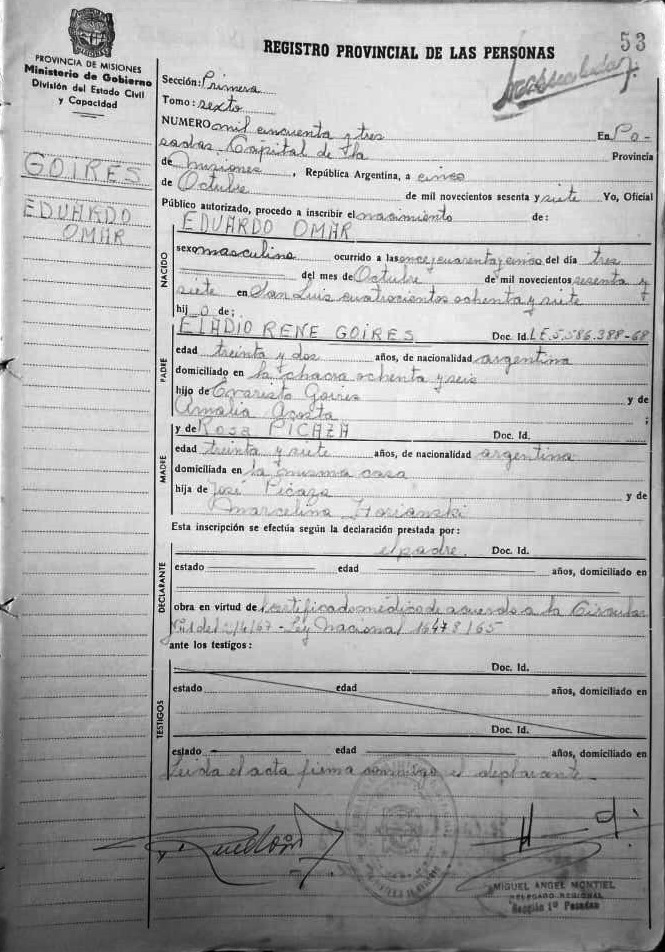 53
PROVINCIA DE MISIONES
Ministerio de Gobierno
División del Estado Civil
y Capacidad
REGISTRO PROVINCIAL DE LAS PERSONAS
GOIRES
EDUARDO
OMAR
Sección: Primera
Tomo: sexto
NUMERO mil cincuenta y tres En Po-
sadas, Capital de la Provincia
de Misiones, República Argentina, a cinco
de Octubre de mil novecientos sesenta y siete Yo, Oficial
Público autorizado, procedo a inscribir el nacimiento de:
EDUARDO OMAR
NACIDO
sexo masculino ocurrido a las once y cuarenta y cinco del día tres
del mes de Octubre de mil novecientos sesenta y
siete en San Luis cuatrocientos ochenta y siete
hij o de:
PADRE
ELADIO RENE GOIRES Doc. Id. L.E.5.586.388-68
edad treinta y dos años, de nacionalidad argentina
domiciliado en la chacra ochenta y seis
hijo de Evaristo Goires y de
Amalia Acosta ;
MADRE
y de ROSA PICAZA Doc. Id.
edad treinta y siete años, de nacionalidad argentina
domiciliada en la misma casa
hija de José Picaza y de
Marcelina
Esta inscripción se efectúa según la declaración prestada por:
DECLARANTE
el padre. Doc. Id.
estado edad años, domiciliado en
obra en virtud de certificado médico de acuerdo a la Circular
del /4/67 - Ley Nacional 16478/65
ante los testigos:
TESTIGOS
Doc. Id.
estado edad años, domiciliado en
Doc. Id.
estado edad años, domiciliado en
Leída el acta firma conmigo el declarante
MIGUEL ANGEL MONTIEL
DELEGADO REGIONAL
Sección 1ª Posadas